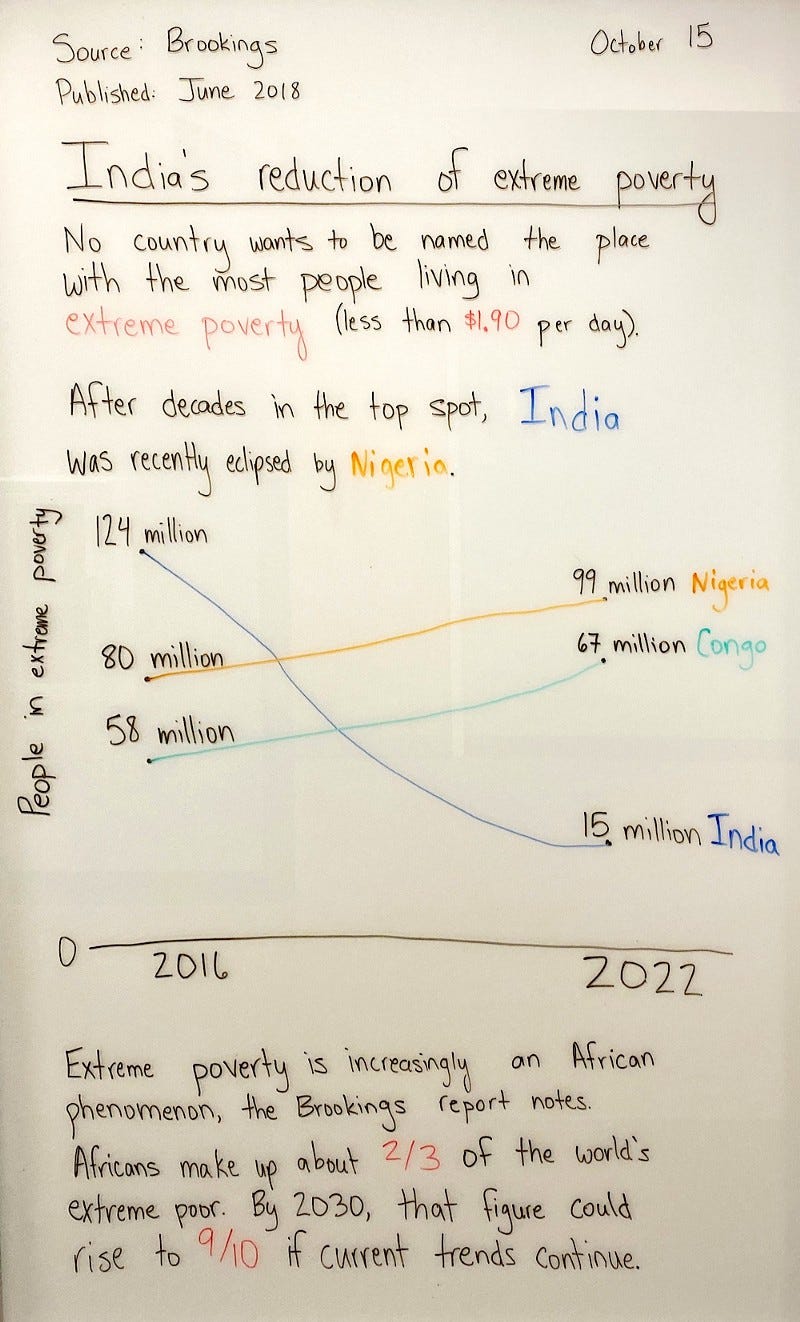 Source: Brookings
October 15
Published: June 2018
India's reduction of extreme poverty
No country wants to be named the place
with the most people living in
extreme poverty (less than $1.90 per day).
After decades in the top spot, India
was recently eclipsed by Nigeria.
People in extreme poverty
124 million
99 million Nigeria
80 million
67 million Congo
58 million
15 million India
0
2016
2022
Extreme poverty is increasingly an African
phenomenon, the Brookings report notes.
Africans make up about 2/3 of the world's
extreme poor. By 2030, that figure could
rise to 9/10 if current trends continue.